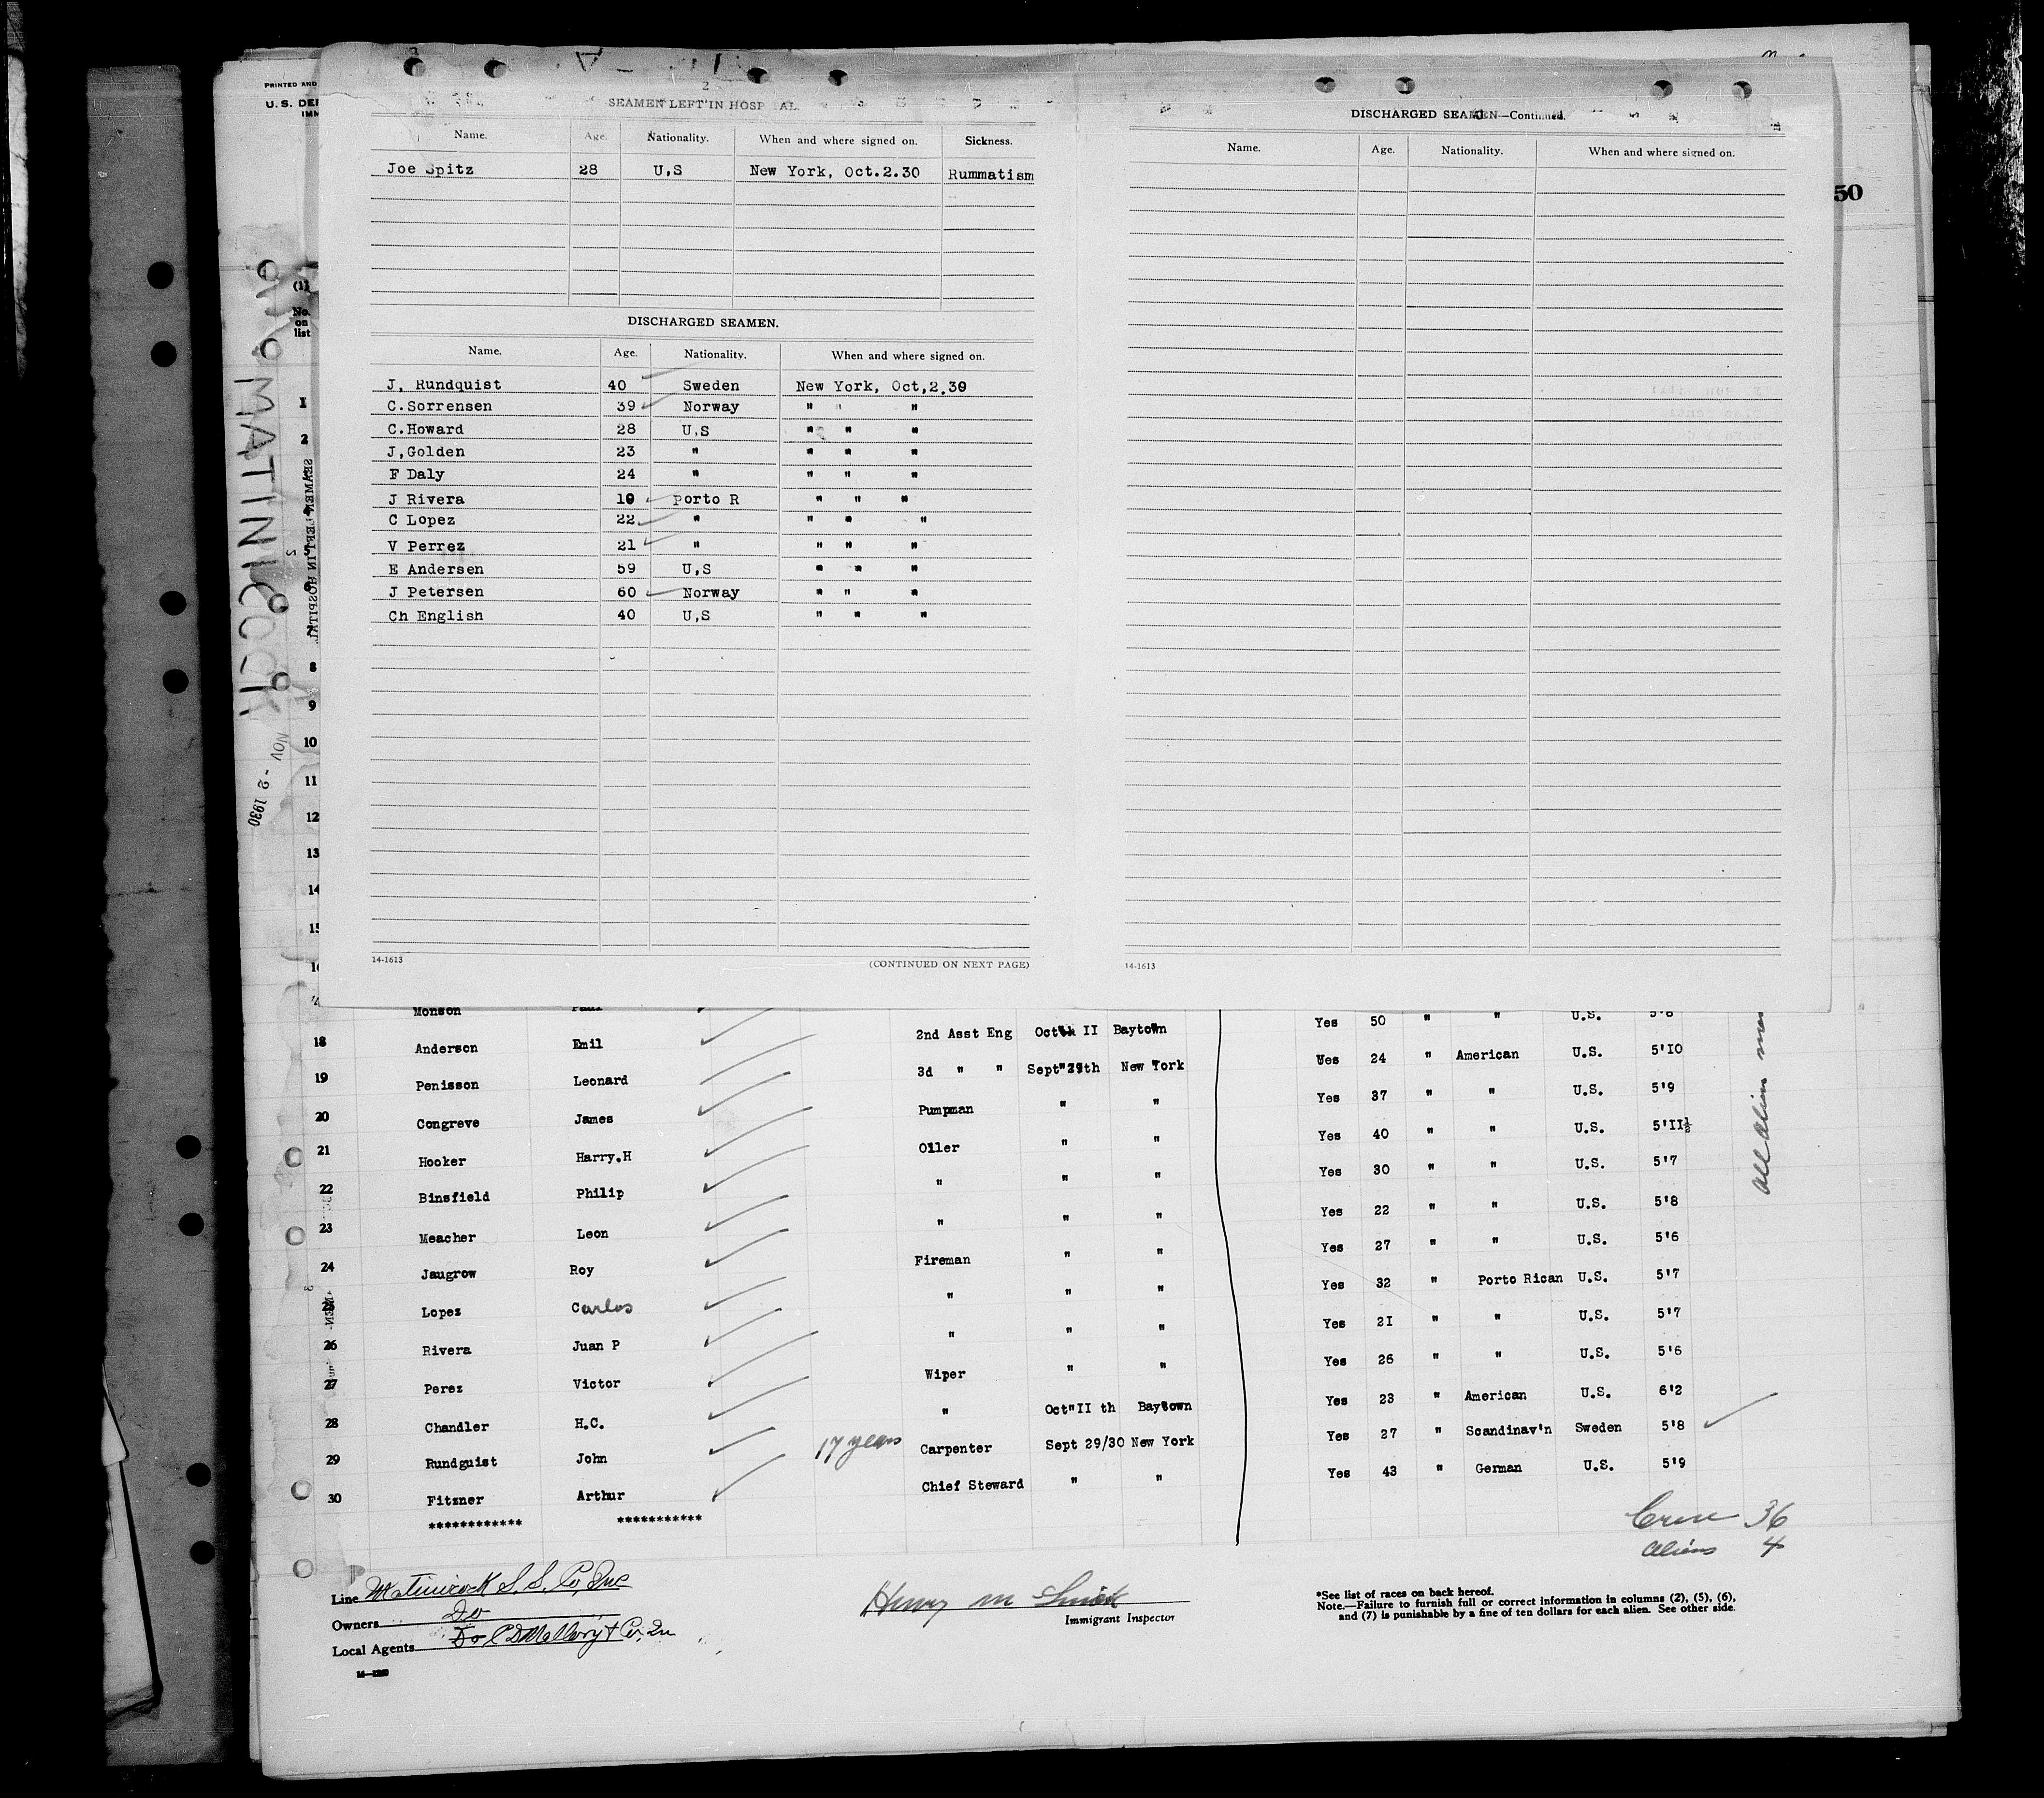 PRINTED AND
U. S. DE
IMM
50
2
SEAMEN LEFT IN HOSPITAL.
Name. Age. Nationality. When and where signed on. Sickness.
Joe Spitz 28 U,S New York, Oct.2.30 Rummatism
DISCHARGED SEAMEN.
Name. Age. Nationality. When and where signed on.
J, Rundquist 40 Sweden New York, Oct,2.30
C.Sorrensen 39 Norway " " "
C.Howard 28 U,S " " "
J,Golden 23 " " " "
F Daly 24 " " " "
J Rivera 19 Porto R " " "
C Lopez 22 " " " "
V Perrez 21 " " " "
E Andersen 59 U,S " " "
J Petersen 60 Norway " " "
Ch English 40 U,S " " "
14-1613 (CONTINUED ON NEXT PAGE)
DISCHARGED SEAMEN—Continued.
Name. Age. Nationality. When and where signed on.
14-1613
MATINICOCK
NOV - 2 1930
SEAMEN LEFT IN HOSPITAL
(1)
No.
on
list
1
2
8
9
10
11
12
13
14
15
Monson Paul Yes 50 " " U.S. 5'8
18 Anderson Emil 2nd Asst Eng Oct II Baytown Yes 24 " American U.S. 5'10
19 Penisson Leonard 3d " " Sept 29th New York Yes 37 " " U.S. 5'9
20 Congreve James Pumpman " " Yes 40 " " U.S. 5'II½
21 Hooker Harry.H Oiler " " Yes 30 " " U.S. 5'7
22 Binsfield Philip " " " Yes 22 " " U.S. 5'8
23 Meacher Leon " " " Yes 27 " " U.S. 5'6
24 Jaugrow Roy Fireman " " Yes 32 " Porto Rican U.S. 5'7
25 Lopez Carlos " " " Yes 2I " " U.S. 5'7
26 Rivera Juan P " " " Yes 26 " " U.S. 5'6
27 Perez Victor Wiper " " Yes 23 " American U.S. 6'2
28 Chandler H.C. " Oct"II th Baytown Yes 27 " Scandinav'n Sweden 5'8
29 Rundguist John 17 years Carpenter Sept 29/30 New York Yes 43 " German U.S. 5'9
30 Fitzner Arthur Chief Steward " "
************ ***********
All Alien
Crew 36
Aliens 4
Line Matinicock S.S. Co, Inc
Owners Do
Local Agents Do C D Mallory & Co, In
Henry M
Immigrant Inspector
*See list of races on back hereof.
Note.—Failure to furnish full or correct information in columns (2), (5), (6),
and (7) is punishable by a fine of ten dollars for each alien. See other side.